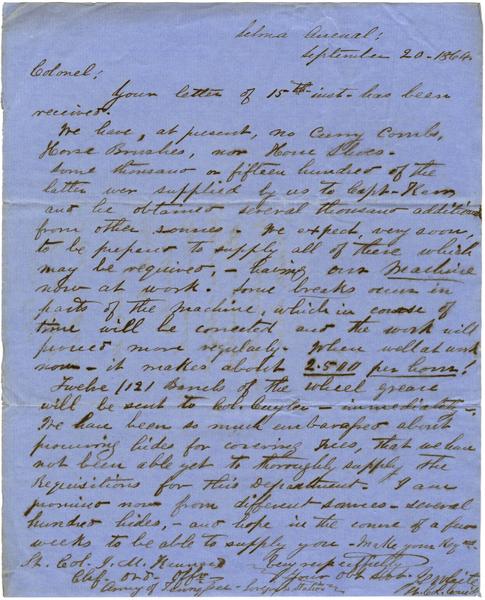 Selma Arsenal;
September 20 - 1864.
Colonel;
Your letter of 15th inst. has been
received.
We have, at present, no Curry Combs,
Horse Brushes, nor Horse Shoes.
Some thousand or fifteen hundred of the
latter wer supplied by us to Capt.
and he obtained several thousand additional
from other sources. We expect, very soon,
to be prepared to supply all of these which
may be required, - having our Machine
now at work. Some breaks occur in
parts of the machine, which in course of
time will be corrected and the work will
proceed more regularly. When well at work
now - it makes about 2.500 per hour!
Twelve (12) Barrels of the wheel grease
will be sent to Col. Cuyler - immediately -
We have been so much embarrassed about
procuring hides for covering trees, that we have
not been able yet to thoroughly supply the
Requisitions for this Department. I am
promised now from different sources - several
hundred hides, - and hope in the course of a few
weeks to be able to supply you - Make your Reqns
Lt. Col. J. M. Kennard Very respectfully
Chf. Ord. Offr Your obt svt.
Army of Tennessee